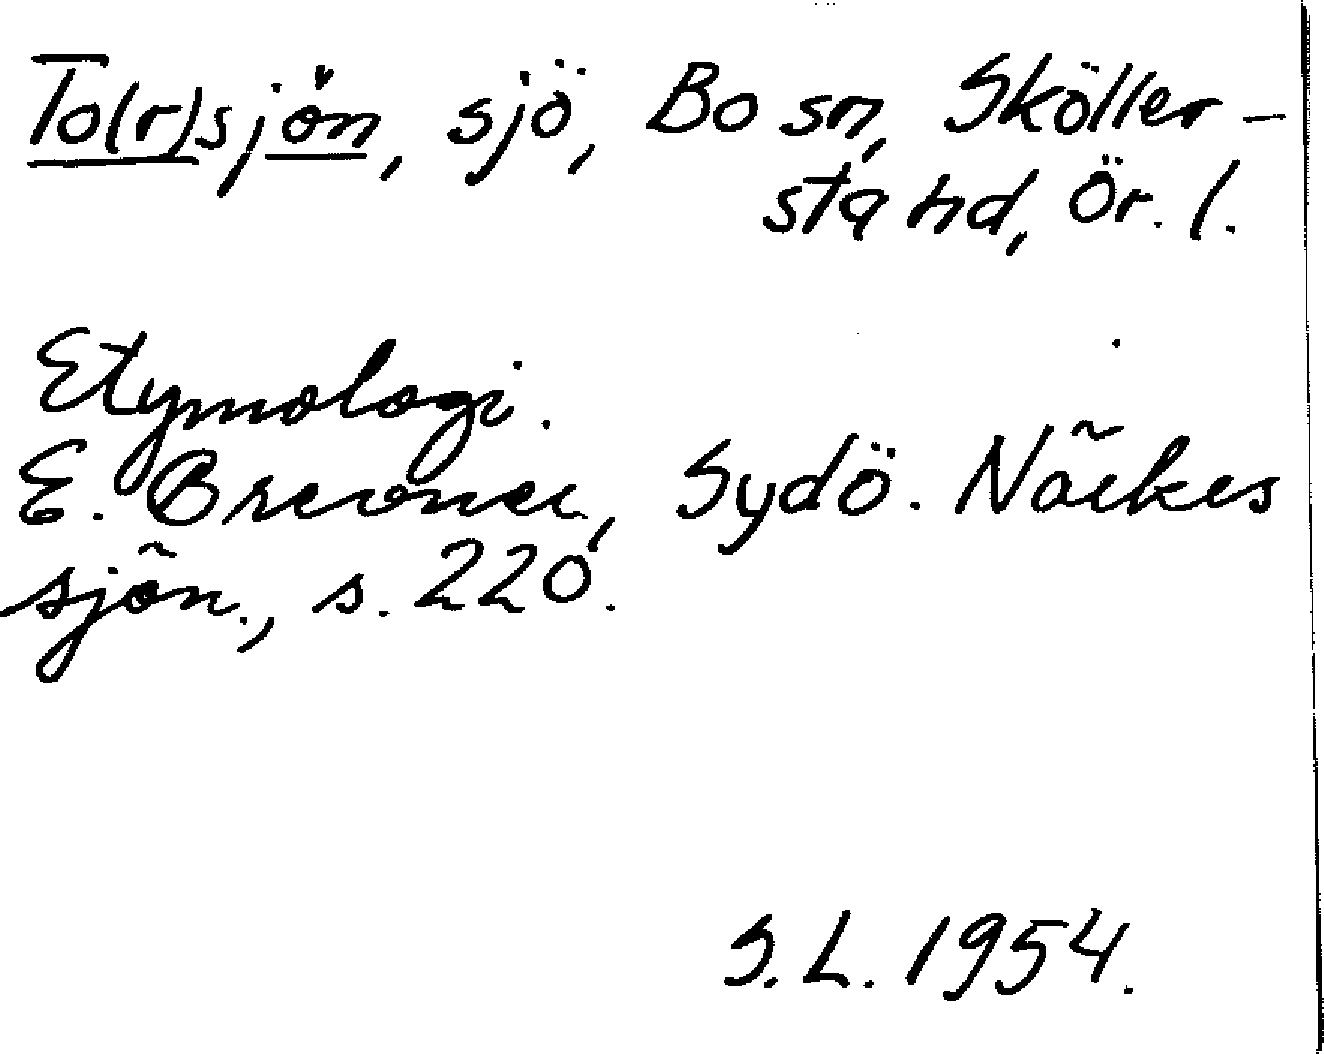 To(r)sjön, sjö, Bo sn, Sköller-
stand, Ör. l.
Etymologi.
E. Brevner, Sydö. Närkes
sjön., s. 220.
S.L. 1954.